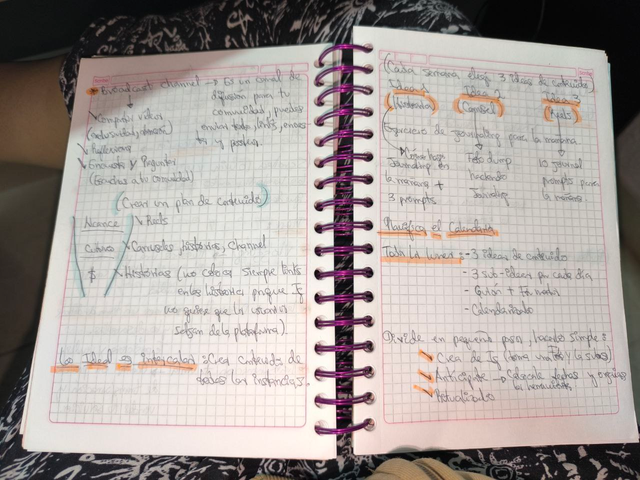 Broadcast channel → Es un canal de
difusión para tu
comunidad, puedes
enviar todo, links, envios
y posteos.
Compartir videos
Reflexiones
Encuestas y Preguntas
(Escuchas a tu comunidad)
(Crear un plan de contenido)
Alcance → Reels
Carruseles, historias, channel
$ → Historias (no colocar siempre links
en las historias porque Ig
no quiere que los usuarios
salgan de la plataforma).
Lo Ideal es Intercalar: Crea contenido de
todas las instancias.
(Cada semana elegi 3 ideas de contenido)
Idea 1 Idea 2 Idea 3
(Historias) (Carrusel) (Reels)
Ejercicio de journaling para la mañana
Foto dump 10 journal
Journaling en haciendo prompts para
la mañana + Journaling la mañana
3 prompts
Planifica el Calendario
Todos los lunes: - 3 ideas de contenido
- 3 sub-ideas por cada día
- Guión + Formatos
- Calendarizado
Divide en pequeños pasos, hacelo simple:
Crea de Ig (hora y la subes)
Anticípate →
Actualizado